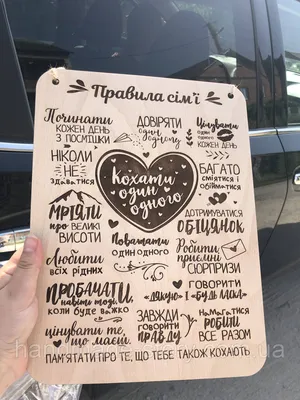 Правила сім'ї
Починати
КОЖЕН ДЕНЬ
З ПОСМІШКИ
ДОВІРЯТИ
один
одному
Цілувати
один одного
КОЖЕН ДЕНЬ
НІКОЛИ
НЕ
здаватися
Кохати
один
одного
БАГАТО
сміятися і
обійматися
МРІЯТИ
про ВЕЛИКІ
ВИСОТИ
ДОТРИМУВАТИСЯ
ОБІЦЯНОК
Поважати
один одного
Любити
всіх рідних
Робити
приємні
СЮРПРИЗИ
ПРОБАЧАТИ,
навіть тоді,
коли буде важко
ГОВОРИТИ
«ДЯКУЮ» І «БУДЬ ЛАСКА»
цінувати те,
що маєш.
ЗАВЖДИ
ГОВОРИТИ
ПРАВДУ
НАМАГАТИСЯ
РОБИТИ
ВСЕ РАЗОМ
ПАМ'ЯТАТИ ПРО ТЕ, ЩО ТЕБЕ ТАКОЖ КОХАЮТЬ